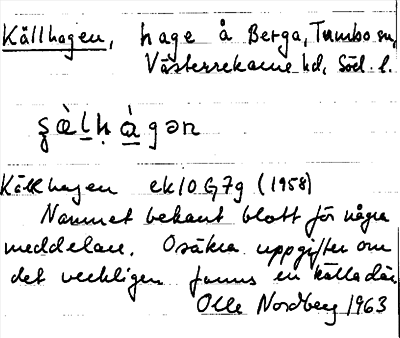 Källhagen, hage å Berga, Tumbo sn,
Västerrekarne hd, Söd. l.
ʂœ̀lḥàgən
Källhagen ek 10G7g (1958)
Namnet bekant blott för några
meddelare. Osäkra uppgifter om
det verkligen fanns en källa där
Olle Nordberg 1963